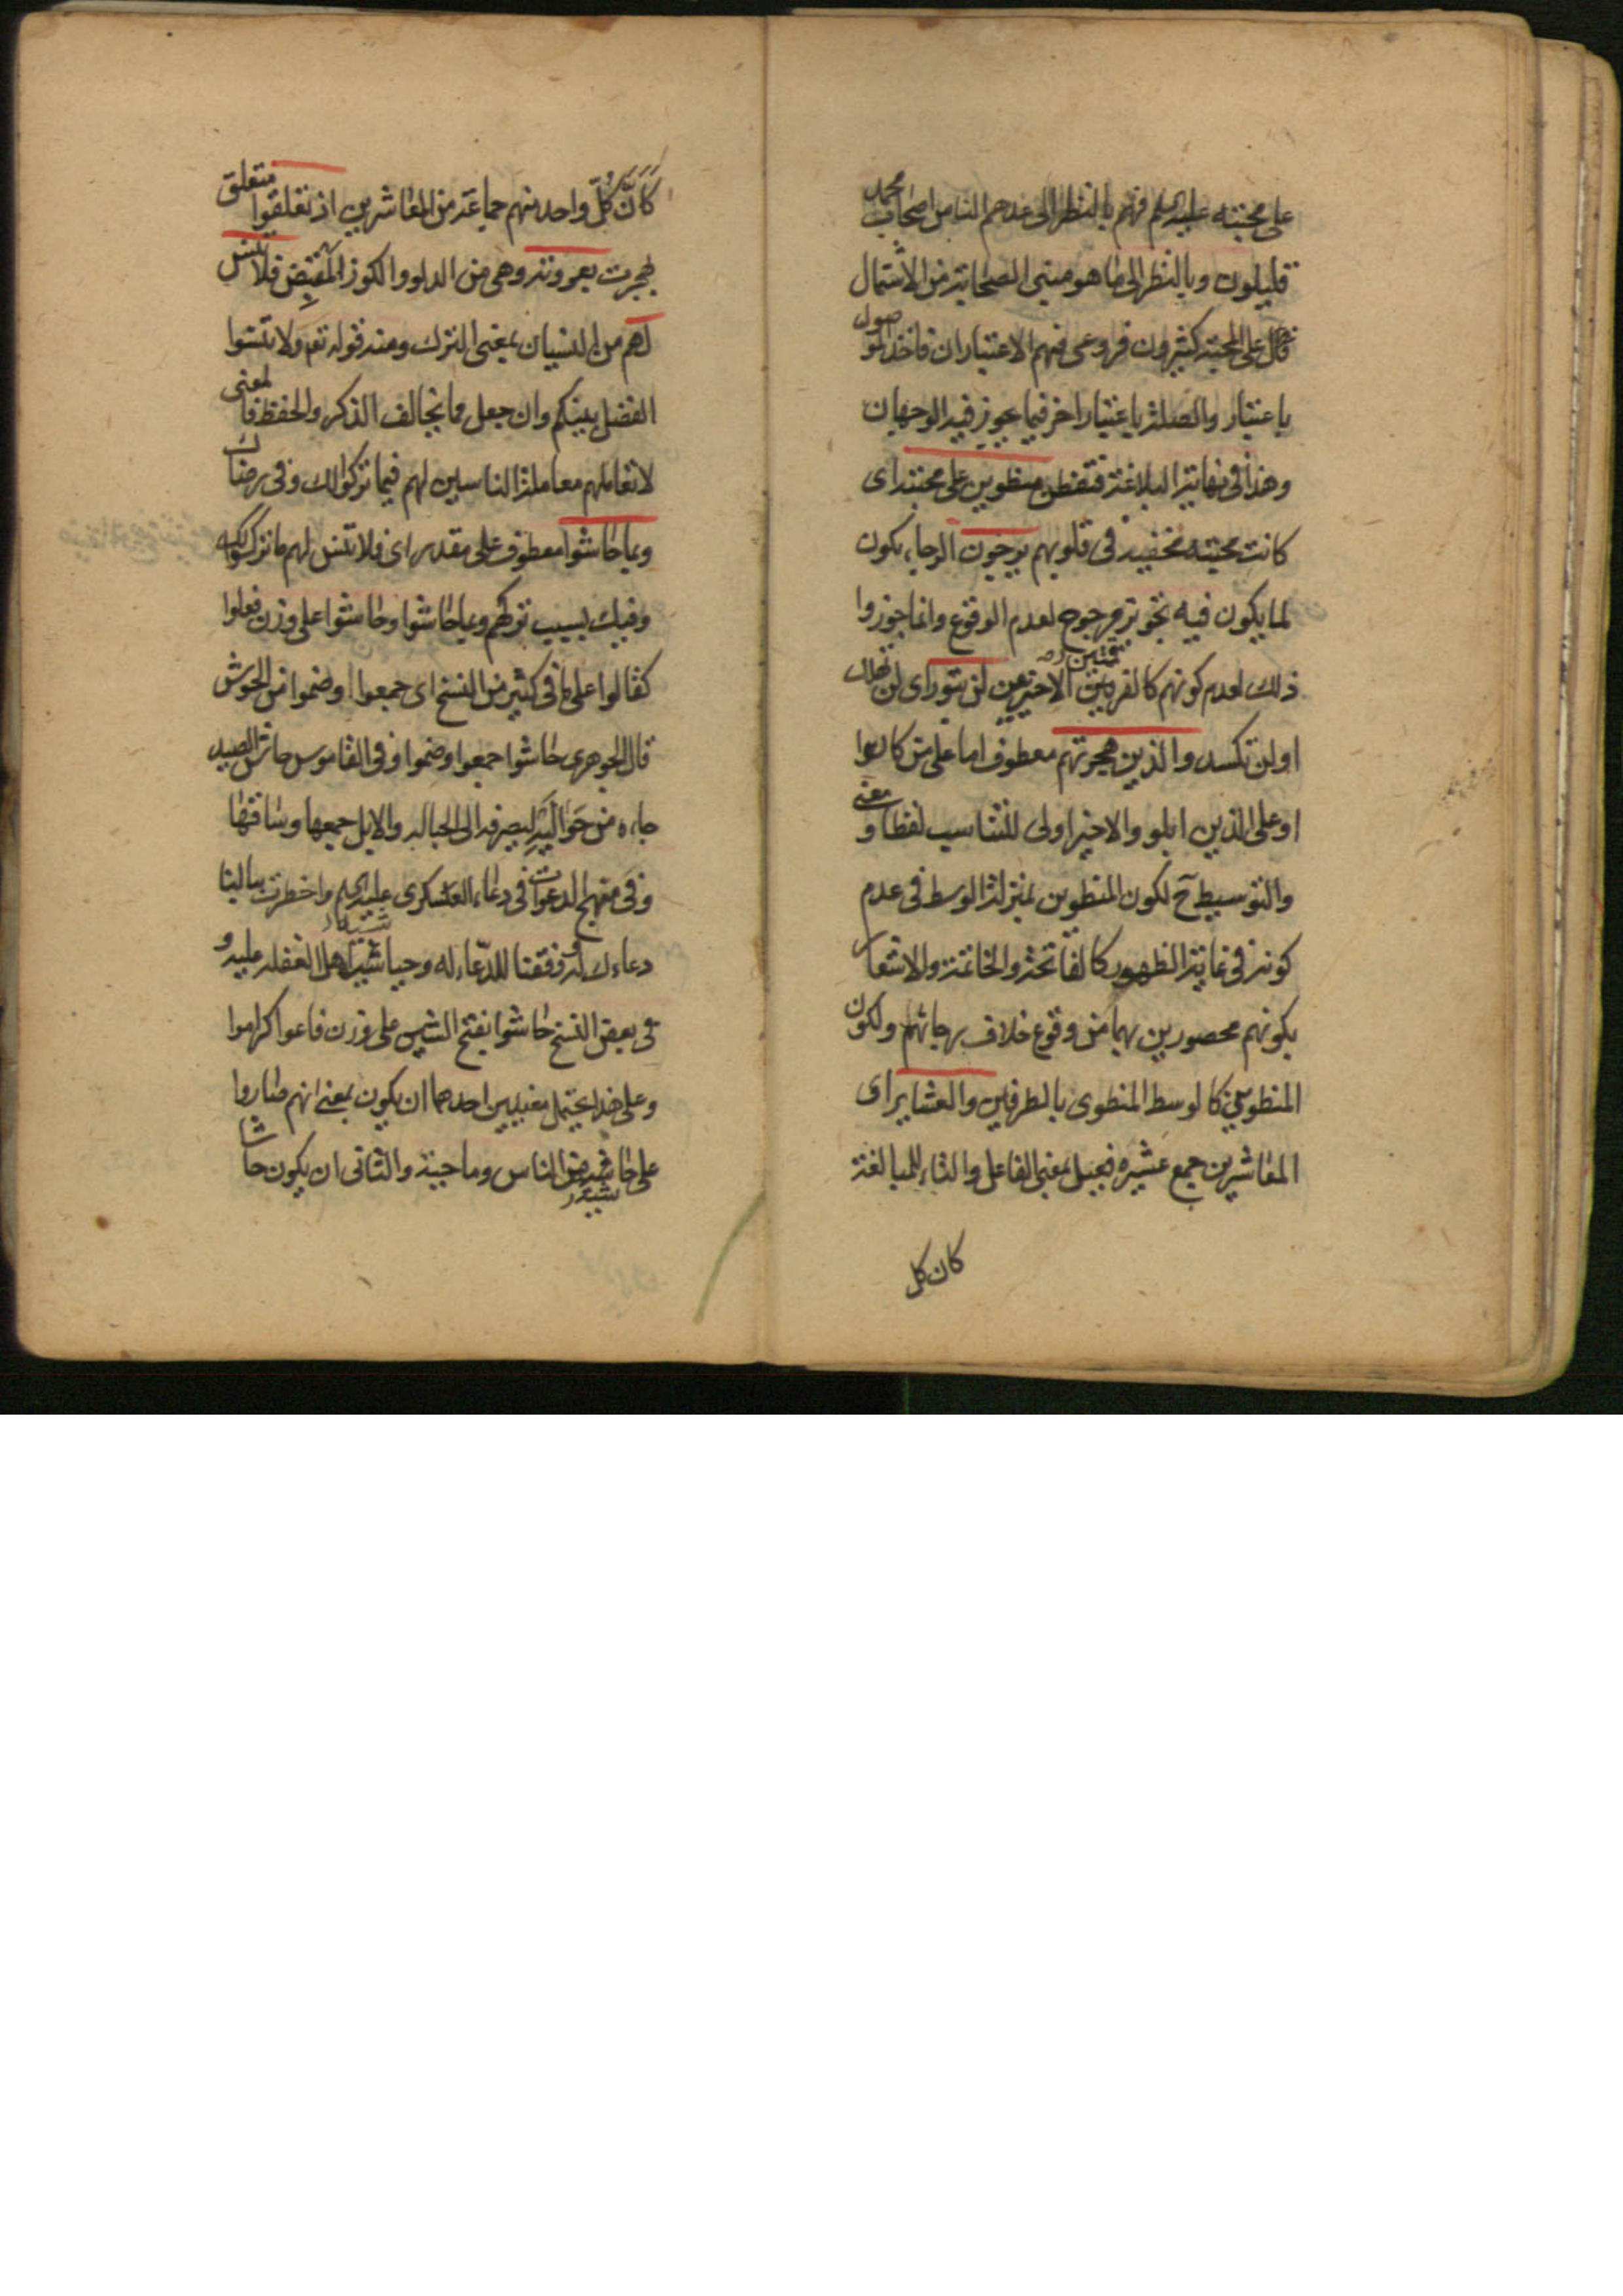 على محبته عليه السلم فهم بالنظر الى عدهم الناس اصحاب محمد
قليلون وبالنظر الى ما هو مبنى الصحابة من الاشتمال
على المحبة كثيرون فروعى فيهم الاعتباران فاخذ الموصول
باعتبار والصلة باعتبار اخر فيما يجوز فيه الوجهان
وهذا فى نهاية البلاغة فتفطن منطوين على محبته اى
كانت محبته مخفية فى قلوبهم يرجون الرجاء يكون
لما يكون فيه تجويز مرجوح لعدم الوقوع وانما جوزوا
ذلك لعدم كونهم كالفريقين الاخيرين لن تبور اى لن تهلك
او لن تكسد والذين هجرتهم معطوف اما على من كانوا
او على الذين ابلوا والاخير اولى للتناسب لفظا ومعنى
والتوسيط ح لكون المنطوين بمنزلة الوسط فى عدم
كونه فى غاية الظهور كالفاتحة والخاتمة والاشعار
بكونهم محصورين بهما من وقوع خلاف رجائهم ولكون
المنطوين كالوسط المنطوى بالطرفين والعشاير اى
المعاشرين جمع عشيره فعيل بمعنى الفاعل والتاء للمبالغة
كان كل
كَأنَّ كُلَّ واحد منهم جماعة من المعاشرين اذ تعلقوا متعلق
بهجرت بعروته وهى من الدلو والكوز المقبض فلا تنس
لهم من النسيان بمعنى الترك ومنه قوله تعم ولا تنسوا
الفضل بينكم وان جعل مما يخالف الذكر والحفظ فالمعنى
لا تعاملهم معاملة الناسين لهم فيما تركوا لك وفى رضاك
وبما حاشوا معطوف على مقدر اى فلا تنس لهم ما تركوا لك
وفيك بسبب تركهم وبما حاشوا وحاشوا على وزن فعلوا
كقالوا على ما فى كثير من النسخ اى جمعوا او ضموا من الحوش
قال الجوهرى حاشوا جمعوا وضموا وفى القاموس حاش الصيد
جاءه من حَوَالَيْهِ ليصرفه الى الحبالة والابل جمعها وساقها
وفى منهج الدعوات فى دعاء العسكرى عليه السلم واخطرت ببالنا
دعاءك له ووفقتنا للدّعاء له وحياشة اهل الغفلة عليه و
فى بعض النسخ حاشوا بفتح الشين على وزن فاعوا كراموا
وعلى هذا يحتمل معنيين احدهما ان يكون بمعنى انهم صاروا
على حاشية من الناس وما جبنة والثانى ان يكون حاشا